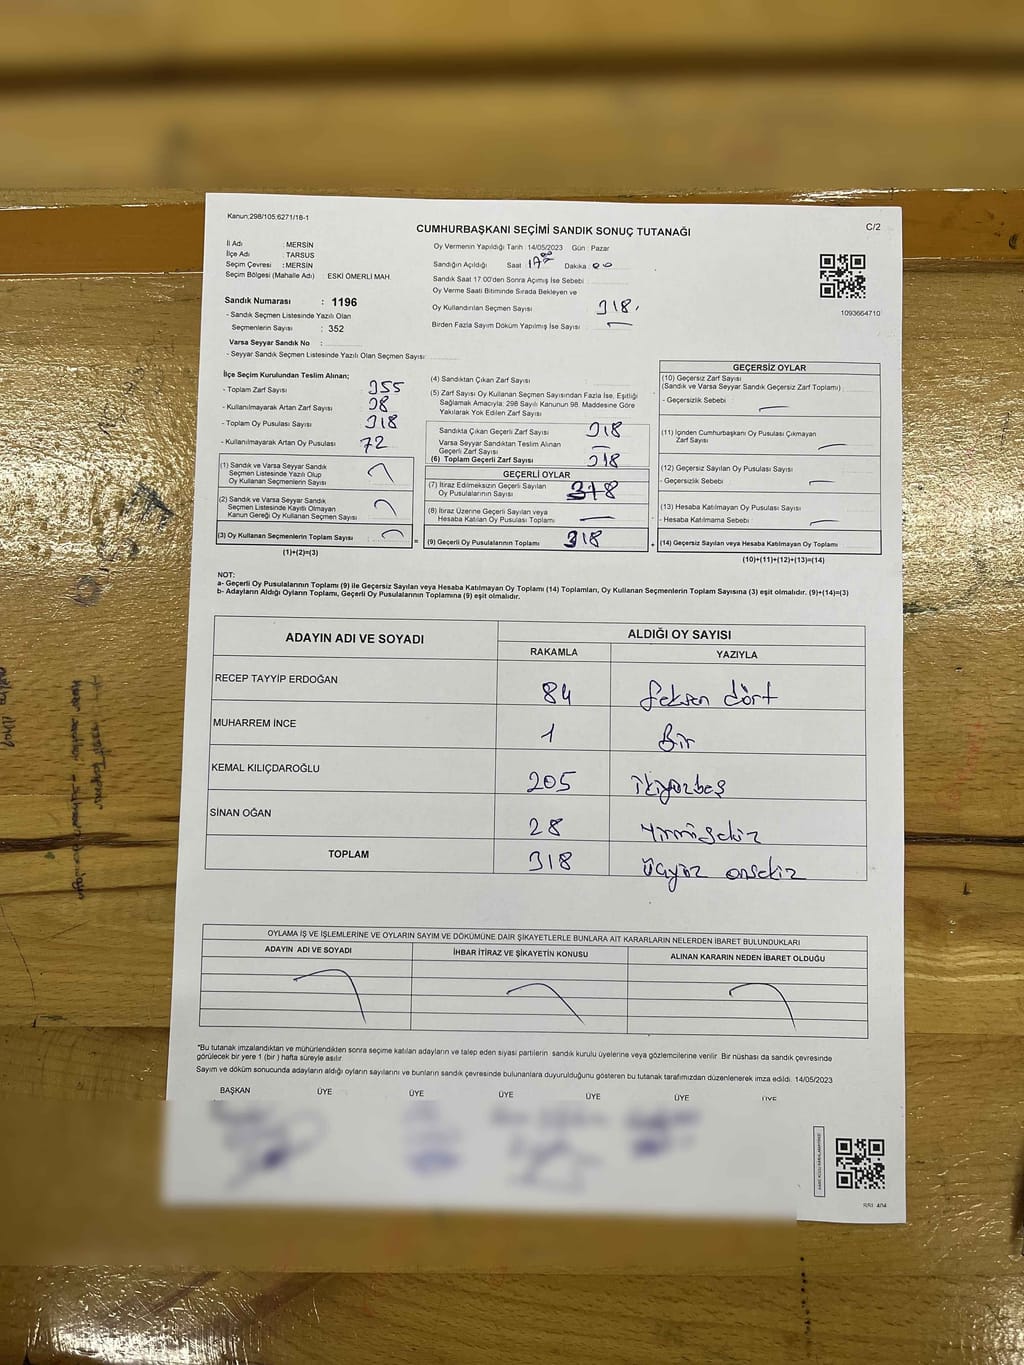 Kanun:298/105:6271/18-1
CUMHURBAŞKANI SEÇİMİ SANDIK SONUÇ TUTANAĞI
C/2
İl Adı : MERSİN
İlçe Adı : TARSUS
Seçim Çevresi : MERSİN
Seçim Bölgesi (Mahalle Adı) : ESKİ ÖMERLİ MAH.
Sandık Numarası : 1196
- Sandık Seçmen Listesinde Yazılı Olan
Seçmenlerin Sayısı : 352
Varsa Seyyar Sandık No :
- Seyyar Sandık Seçmen Listesinde Yazılı Olan Seçmen Sayısı:
Oy Vermenin Yapıldığı Tarih : 14/05/2023 Gün : Pazar
Sandığın Açıldığı Saat : 17 00 Dakika : 00
Sandık Saat 17.00'den Sonra Açımış İse Sebebi :
Oy Verme Saati Bitiminde Sırada Bekleyen ve
Oy Kullandırılan Seçmen Sayısı : 318
Birden Fazla Sayım Döküm Yapılmış İse Sayısı : —
1093664710
İlçe Seçim Kurulundan Teslim Alınan;
- Toplam Zarf Sayısı : 355
- Kullanılmayarak Artan Zarf Sayısı : 38
- Toplam Oy Pusulası Sayısı : 318
- Kullanılmayarak Artan Oy Pusulası : 72
(1) Sandık ve Varsa Seyyar Sandık
Seçmen Listesinde Yazılı Olup
Oy Kullanan Seçmenlerin Sayısı
(2) Sandık ve Varsa Seyyar Sandık
Seçmen Listesinde Kayıtlı Olmayan
Kanun Gereği Oy Kullanan Seçmen Sayısı
(3) Oy Kullanan Seçmenlerin Toplam Sayısı :
(1)+(2)=(3)
(4) Sandıktan Çıkan Zarf Sayısı :
(5) Zarf Sayısı Oy Kullanan Seçmen Sayısından Fazla İse, Eşitliği
Sağlamak Amacıyla; 298 Sayılı Kanunun 98. Maddesine Göre
Yakılarak Yok Edilen Zarf Sayısı
Sandıkta Çıkan Geçerli Zarf Sayısı : 318
Varsa Seyyar Sandıktan Teslim Alınan
Geçerli Zarf Sayısı : —
(6) Toplam Geçerli Zarf Sayısı : 318
GEÇERLİ OYLAR
(7) İtiraz Edilmeksizin Geçerli Sayılan
Oy Pusulalarının Sayısı : 318
(8) İtiraz Üzerine Geçerli Sayılan veya
Hesaba Katılan Oy Pusulası Toplamı : —
(9) Geçerli Oy Pusulalarının Toplamı : 318
GEÇERSİZ OYLAR
(10) Geçersiz Zarf Sayısı
(Sandık ve Varsa Seyyar Sandık Geçersiz Zarf Toplamı) :
- Geçersizlik Sebebi : —
(11) İçinden Cumhurbaşkanı Oy Pusulası Çıkmayan
Zarf Sayısı : —
(12) Geçersiz Sayılan Oy Pusulası Sayısı :
- Geçersizlik Sebebi : —
(13) Hesaba Katılmayan Oy Pusulası Sayısı :
- Hesaba Katılmama Sebebi : —
(14) Geçersiz Sayılan veya Hesaba Katılmayan Oy Toplamı :
(10)+(11)+(12)+(13)=(14)
NOT:
a- Geçerli Oy Pusulalarının Toplamı (9) ile Geçersiz Sayılan veya Hesaba Katılmayan Oy Toplamı (14) Toplamları, Oy Kullanan Seçmenlerin Toplam Sayısına (3) eşit olmalıdır. (9)+(14)=(3)
b- Adayların Aldığı Oyların Toplamı, Geçerli Oy Pusulalarının Toplamına (9) eşit olmalıdır.
ADAYIN ADI VE SOYADI
ALDIĞI OY SAYISI
RAKAMLA YAZIYLA
RECEP TAYYİP ERDOĞAN 84 seksen dört
MUHARREM İNCE 1 Bir
KEMAL KILIÇDAROĞLU 205 ikiyüzbeş
SİNAN OĞAN 28 Yirmisekiz
TOPLAM 318 üçyüz onsekiz
OYLAMA İŞ VE İŞLEMLERİNE VE OYLARIN SAYIM VE DÖKÜMÜNE DAİR ŞİKAYETLERLE BUNLARA AİT KARARLARIN NELERDEN İBARET BULUNDUKLARI
ADAYIN ADI VE SOYADI İHBAR İTİRAZ VE ŞİKAYETİN KONUSU ALINAN KARARIN NEDEN İBARET OLDUĞU
"Bu tutanak imzalandıktan ve mühürlendikten sonra seçime katılan adayların ve talep eden siyasi partilerin sandık kurulu üyelerine veya gözlemcilerine verilir. Bir nüshası da sandık çevresinde
görülecek bir yere 1 (bir ) hafta süreyle asılır.
Sayım ve döküm sonucunda adayların aldığı oyların sayılarını ve bunların sandık çevresinde bulunanlara duyurulduğunu gösteren bu tutanak tarafımızdan düzenlenerek imza edildi. 14/05/2023
BAŞKAN ÜYE ÜYE ÜYE ÜYE ÜYE ÜYE